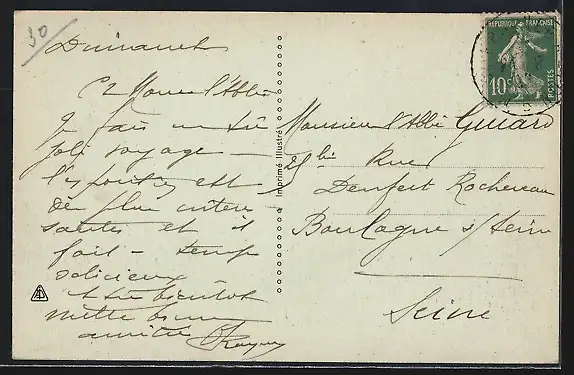 30
Dimanche
Cr Monsieur l'Abbé
Je fais un très
joli voyage –
est
des plus intéres-
santes et il
fait – temps
délicieux
A très bientôt
mille bonnes
amitiés
Imprimé Illustré
REPUBLIQUE FRANÇAISE
10c
POSTES
Monsieur l'Abbé Guiard
bis Rue
Denfert Rochereau
Boulogne s/ Seine
Seine